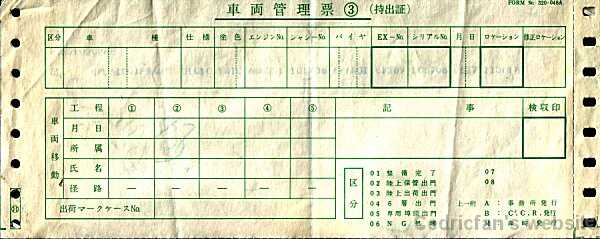 車両管理票③(持出証)
FORM No. 320-048A
区分 車 種 仕様 塗色 エンジンNo. シャシーNo. バイヤ EX-No. シリアルNo. 月日 ロケーション 修正ロケーション
車両移動 工程 ① ② ③ ④ ⑤
月日
所属
氏名
経路 — — — — —
出荷マークケースNo.
記事 検収印
区分
01 整備完了 07
02 陸上保管出門 08
03 陸上出荷出門
04 6層出門 上一桁 A:事務所発行
05 専用埠頭出門 B:C.C.R.発行
06 NG
Cedricfan's website